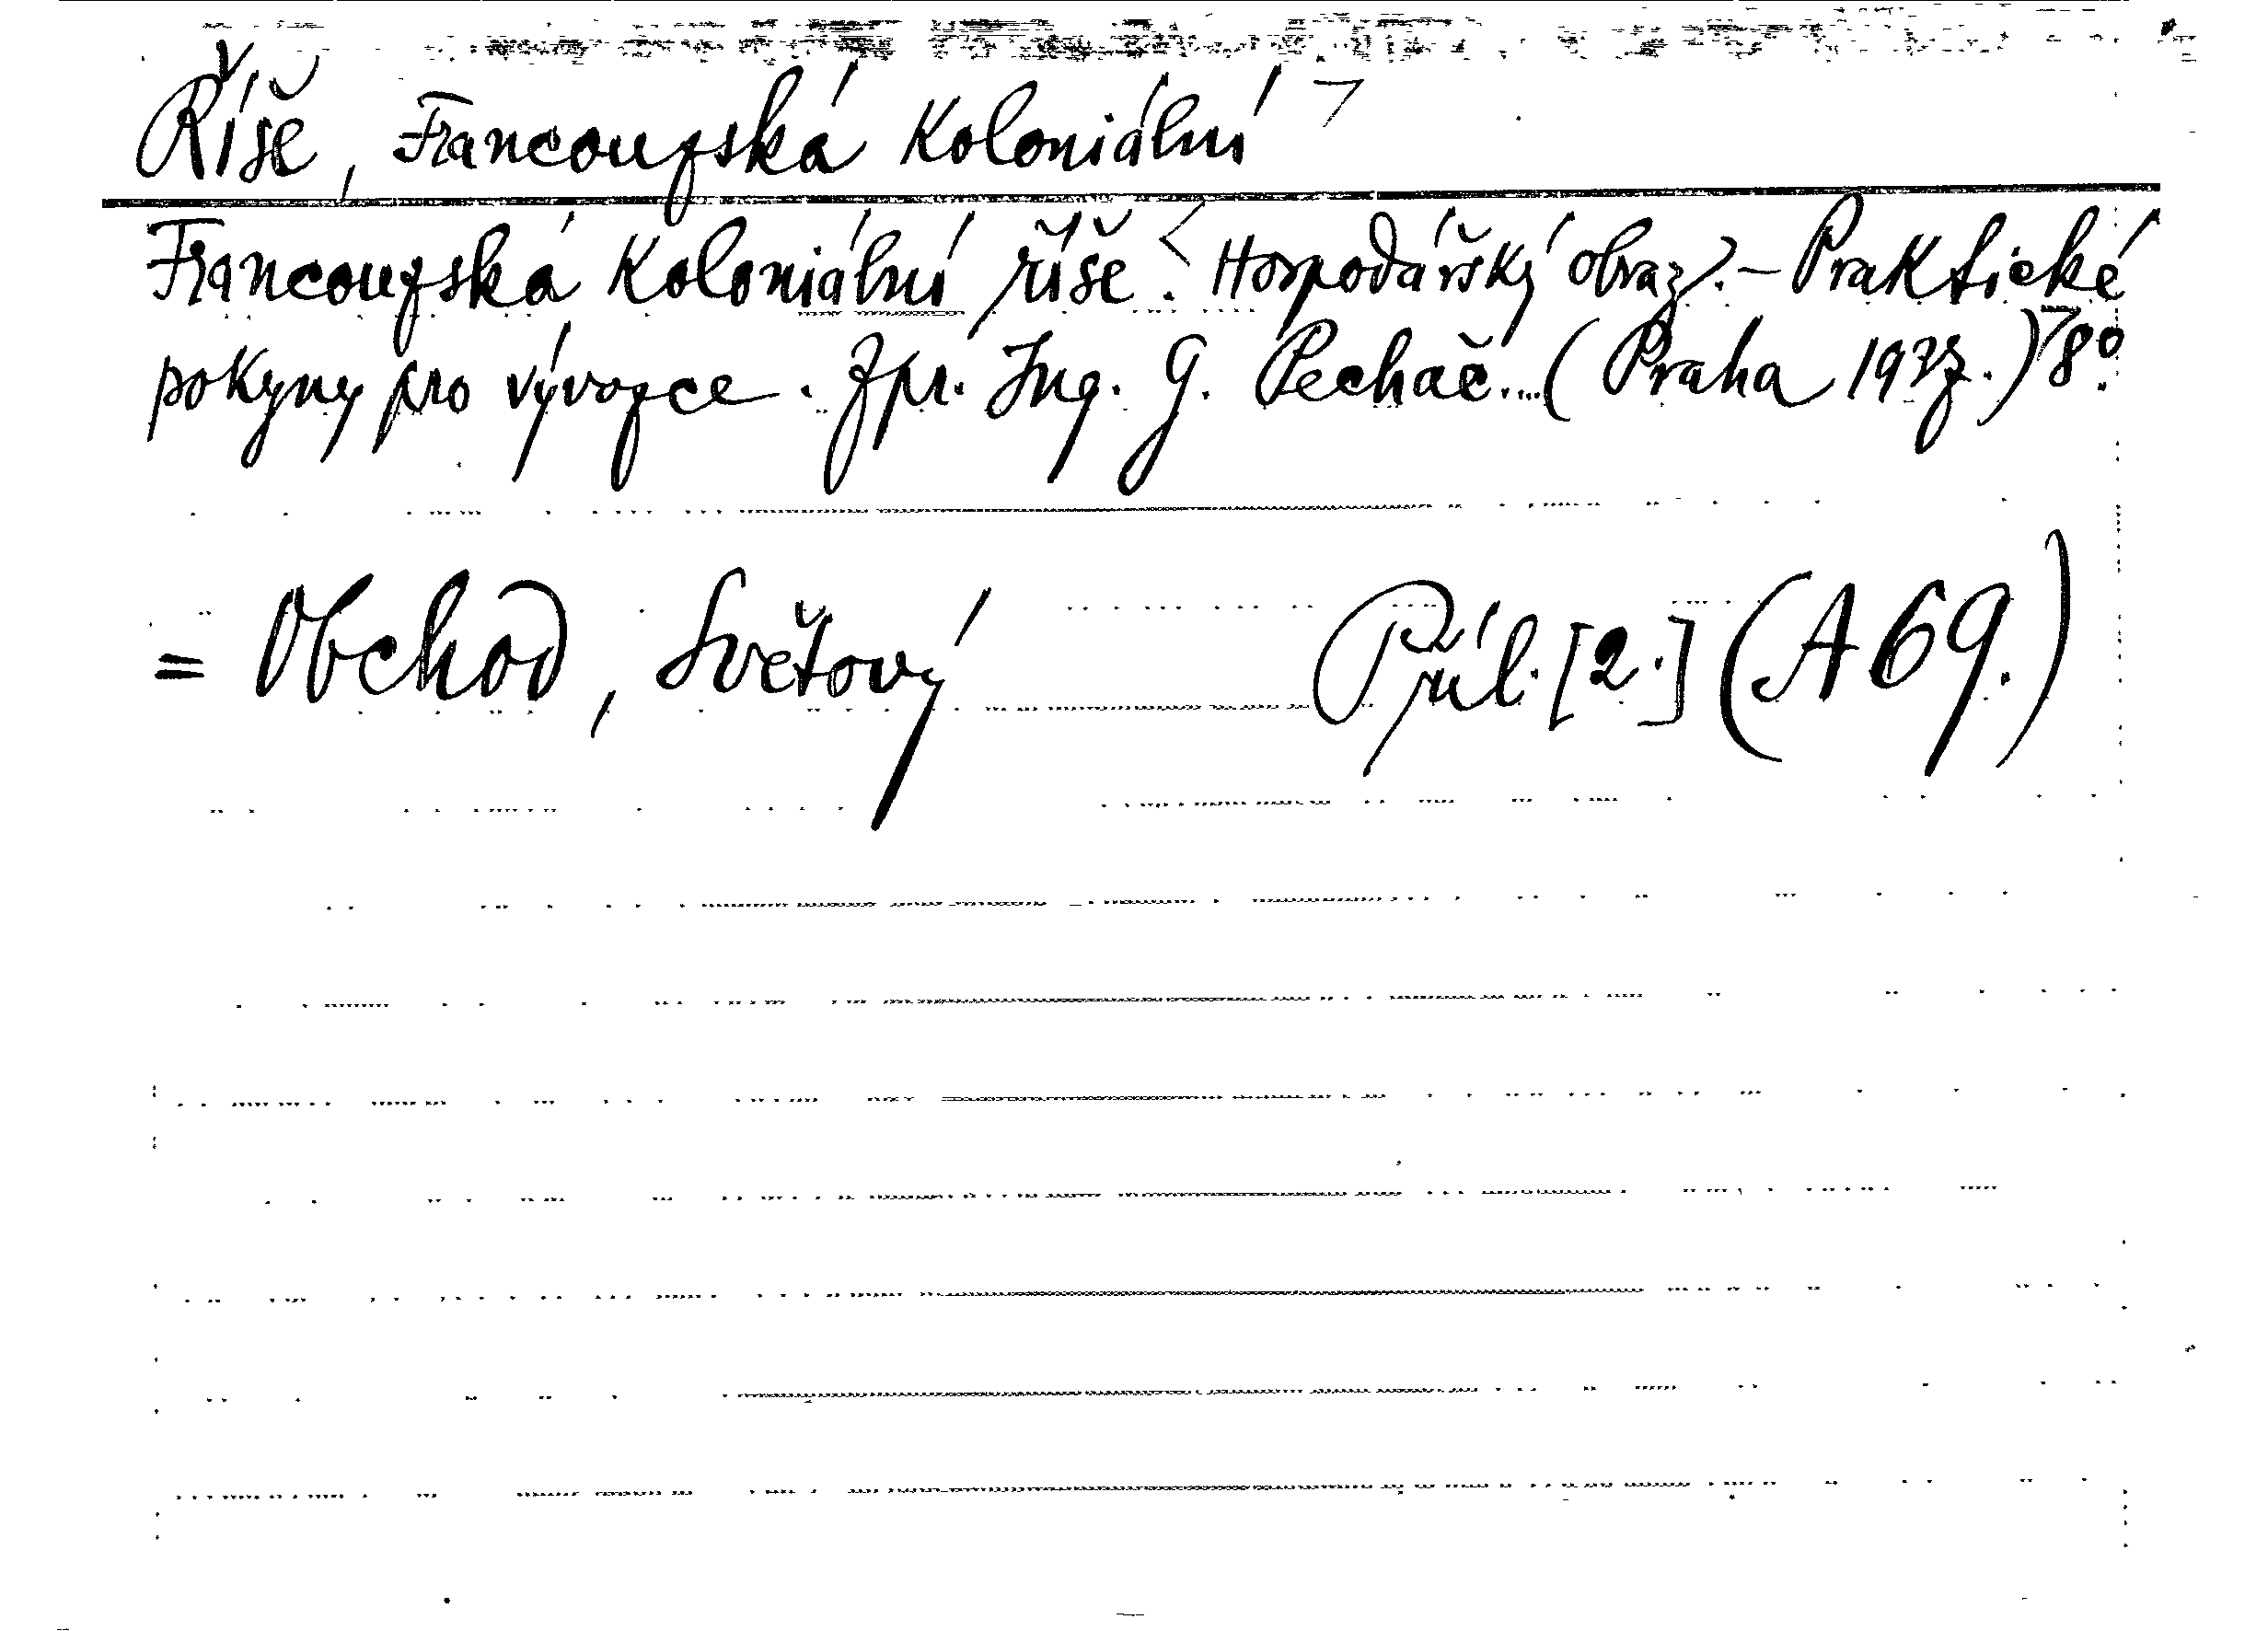 Říše, Francouzská Koloniální >
Francouzská Koloniální říše. < Hospodářský obraz. - Praktické
pokyny pro vývozce. Zpr. Ing. G. Pechač... (Praha > 8°.
= Obchod, Světový Příl. [2.] (A 69.)